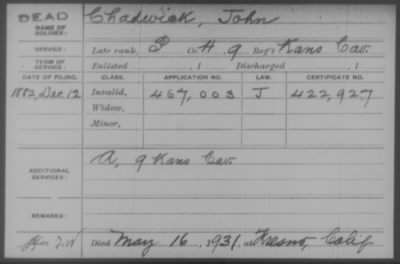 DEAD
NAME OF SOLDIER: Chadwick, John
SERVICE: Late rank, P Co. H, 9 Reg't Kans Cav.
TERM OF SERVICE: Enlisted , 1 Discharged , 1
DATE OF FILING. CLASS. APPLICATION NO. LAW. CERTIFICATE NO.
1882, Dec 12 Invalid, 467,003 J 422,927
Widow,
Minor,
ADDITIONAL SERVICES: A, 9 Kans Cav.
REMARKS:
Died May 16, 1931, at Fresno, Calif